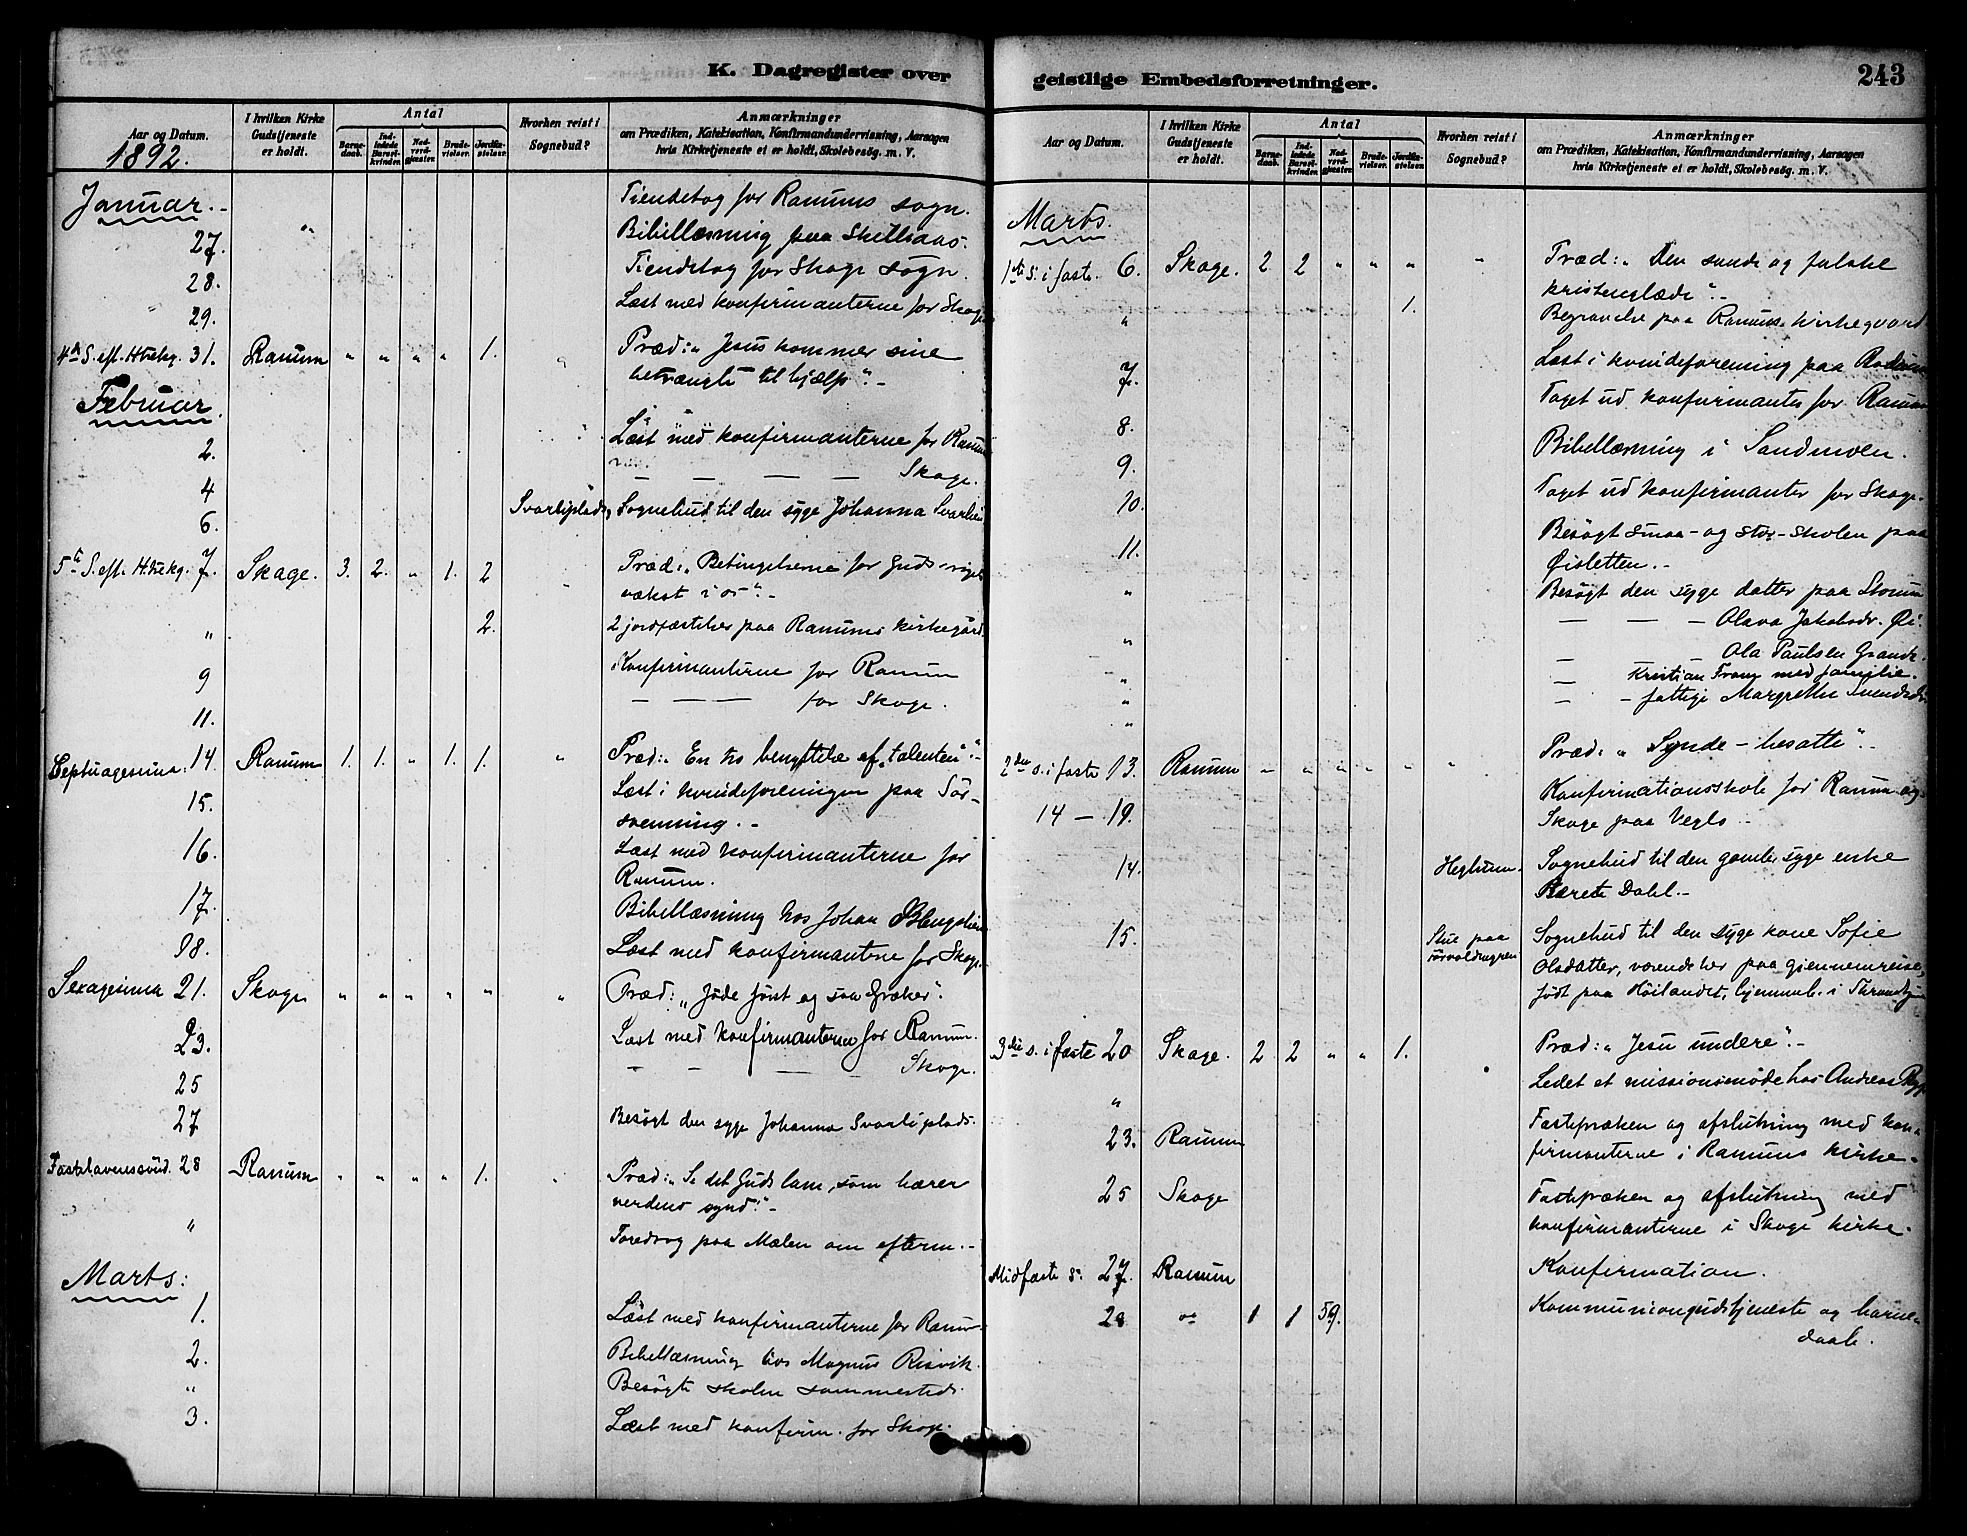 K. Dagregister over
Aar og Datum.
1892.
I hvilken Kirke
Gudstjeneste
er holdt.
Antal
Barne-
daab.
Ind-
ledede
Barsel-
kvinder
Nad-
verd-
gjæster.
Brude-
vielser.
Jordfæ-
stelser.
Hvorhen reist i
Sognebud?
Anmærkninger
om Prædiken, Katekisation, Konfirmandundervisning, Aarsagen
hvis Kirketjeneste ei er holdt, Skolebesøg. m. V.
Januar.
Tiendetog for Ranums sogn.
27. " Bibellæsning paa Skillsaas.
28. Tiendetog for Skage sogn.
29. Læst med konfirmanterne for Skage
4de S. eft. H.trekg. 31. Ranum " " " " 1. " Præd: „Jesus kommer sine
betrængte til hjælp“. -
Februar.
2. Læst med konfirmanterne for Ranum
4 — — — — Skage.
6. Svarliplads, Sognebud til den syge Johanna Svarlien
5te S. eft. H.trekg. 7. Skage. 3. 2. " 1. 2 Præd: „Betingelserne for Guds riges
vækst i os“. -
" 2. 2 jordfæstelser paa Ranums kirkegård.
9 Konfirmanterne for Ranum
11. — — — for Skage.
Septuagesima. 14. Ranum 1. 1. " 1. 1. " Præd: „En tro benyttelse af „talenten“. -
15. Læst i kvindeforeningen paa Sör-
svenning. -
16. Læst med konfirmanterne for
Ranum.
17. Bibellæsning hos Johan
18. Læst med konfirmanterne for Skage.
Sexagesima 21. Skage " " " " " " Præd: „Jøde først og saa Græker“.
23. Læst med konfirmanterne for Ranum.
25 — — — — Skage.
27 Besøgt den syge Johanna Svarliplads.
Fastelavenssönd. 28 Ranum " " " " 1. " Præd: „Se det Guds lam, som bærer
verdens synd“. -
" Foredrag paa Mælen om efterm. -
Marts:
1. Læst med konfirmanterne for Ranum
2. Bibellæsning hos Magnus Risvik.
" Besøgte skolen sammesteds.
3. Læst med konfirm. for Skage.
geistlige Embedsforretninger.
243
Aar og Datum.
I hvilken Kirke
Gudstjeneste
er holdt.
Antal
Barne-
daab.
Ind-
ledede
Barsel-
kvinder
Nad-
verd-
gjæster.
Brude-
vielser.
Jordfæ-
stelser.
Hvorhen reist i
Sognebud?
Anmærkninger
om Prædiken, Katekisation, Konfirmandundervisning, Aarsagen
hvis Kirketjeneste ei er holdt, Skolebesøg. m. V.
Marts.
1ste S. i faste. 6. Skage. 2 2 " " " " Præd: „Den sande og falske
kristenglæde“. -
" 1. Begravelse paa Ranums kirkegaard
7. Læst i kvindeforening paa
8. Taget ud konfirmanter for Ranum
9. Bibellæsning i Sandmoen.
10. Taget ud konfirmanter for Skage.
11. Besøgt smaa- og stor-skolen paa
Øisletten. -
" Besøgt den syge datter paa
" — — — Olava Jakobsdr. Øi.
" — — Ola Paulsen Grande.
" — Kristian med familie.
" — - fattige Margrethe
2den s. i faste 13. Ranum " " " " " " Præd: „Synde-besatte“. -
14 — 19. Konfirmationsskole for Ranum og
Skage paa Vegla -
14. Sognebud til den gamle syge enke
Berete Dahl. -
15. Stue paa Sognebud til den syge kone Sofie
Olsdatter, værende her paa gjennemreise,
født paa Höilandet, hjemmeh. i
3die s. i faste 20 Skage. 2 2 " " 1. Præd: „Jesu undere“. -
" Ledet et missionsmøde hos Andreas
23. Ranum Fastepræken og afslutning med kon-
firmanterne i Ranums kirke.
25 Skage Fastepræken og afslutning med
konfirmanterne i Skage kirke.
Midfaste s. 27. Ranum Konfirmation.
28 do 1 1 59. Kommuniongudstjeneste og barne-
daab.